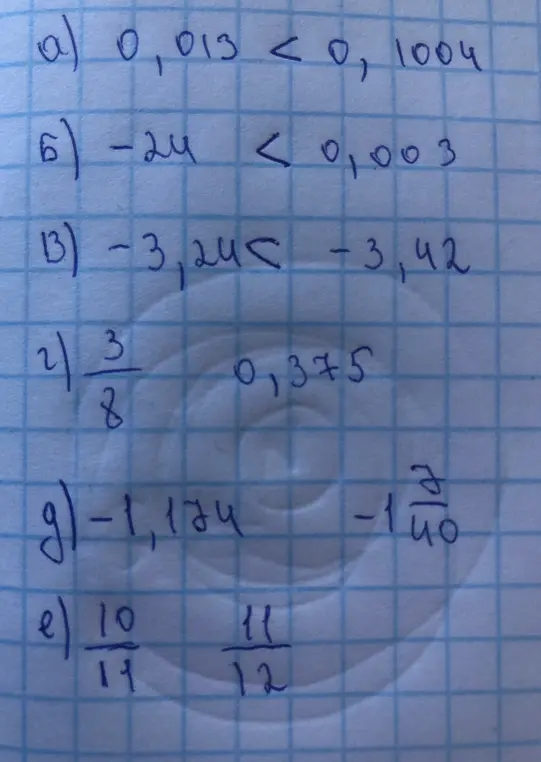 а) 0,013 < 0,1004
б) -24 < 0,003
в) -3,24 < -3,42
г) 3/8 0,375
д) -1,174 -1 7/40
е) 10/11 11/12